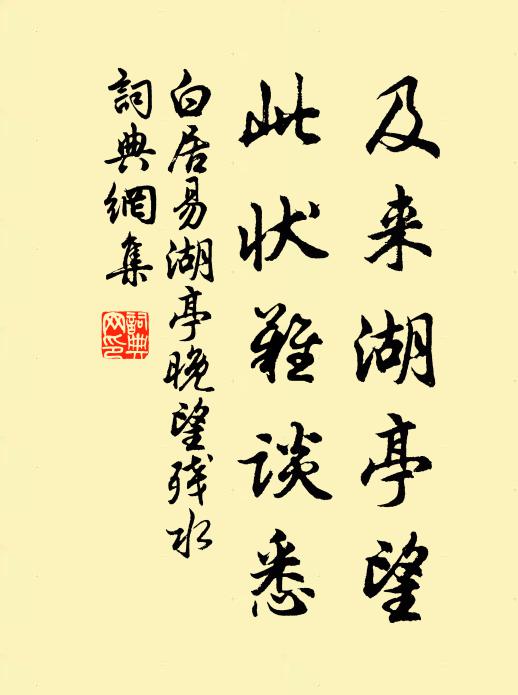 及来湖亭望
此状难谈悉
白居易湖亭晚望残水
詞典網集
詞典
网印